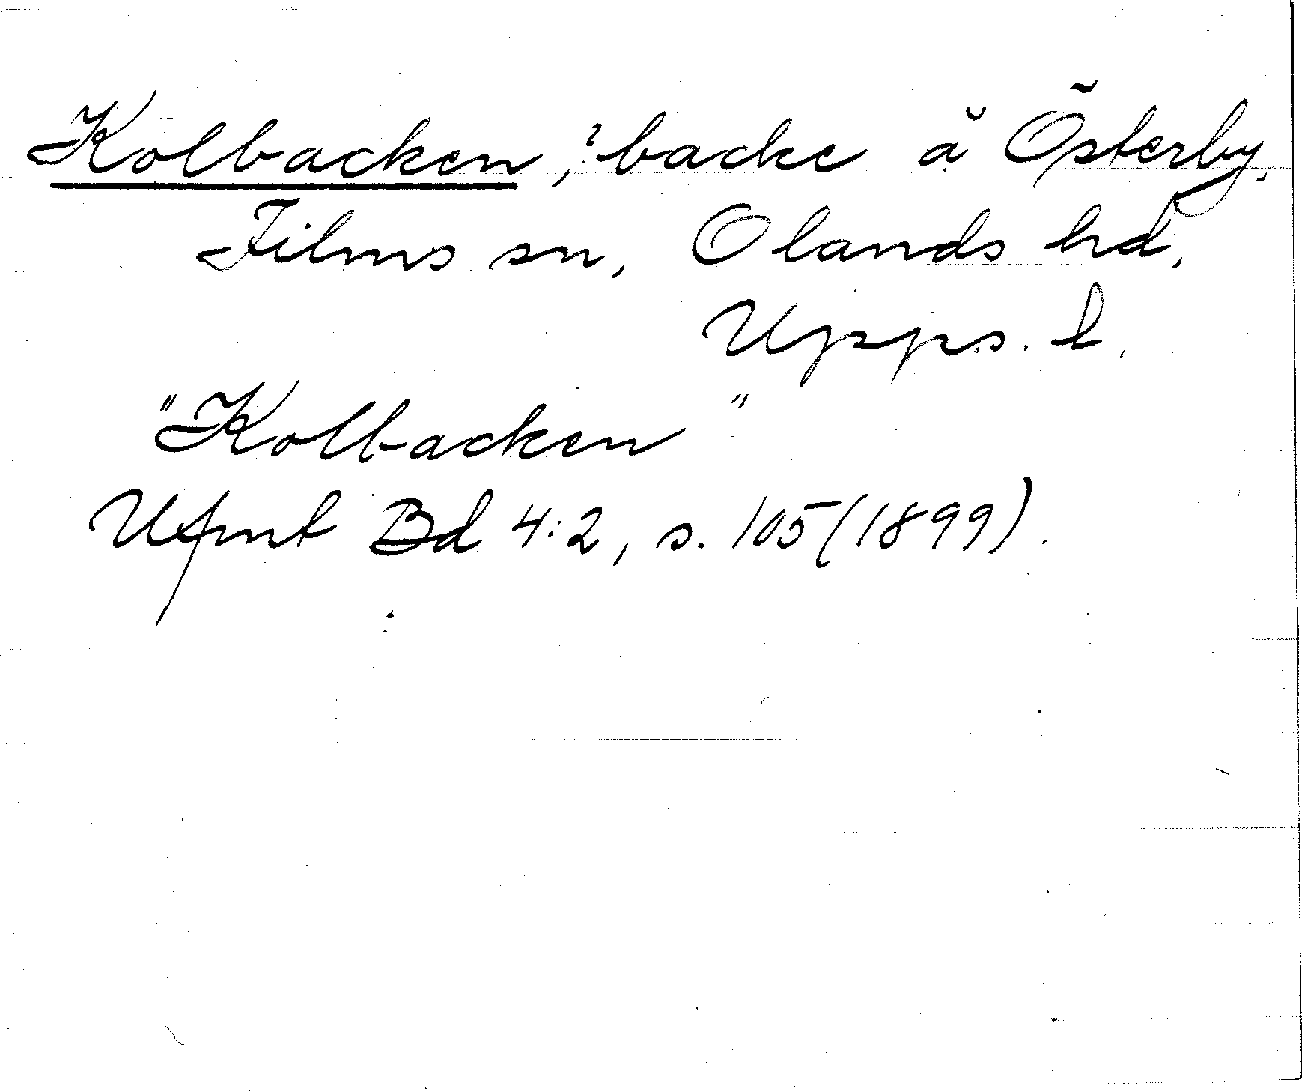 Kolbacken, ?backe å Österby,
Films sn, Olands hd,
Upps. l.
"Kolbacken"
Ufmt Bd 4:2, s. 105 (1899).